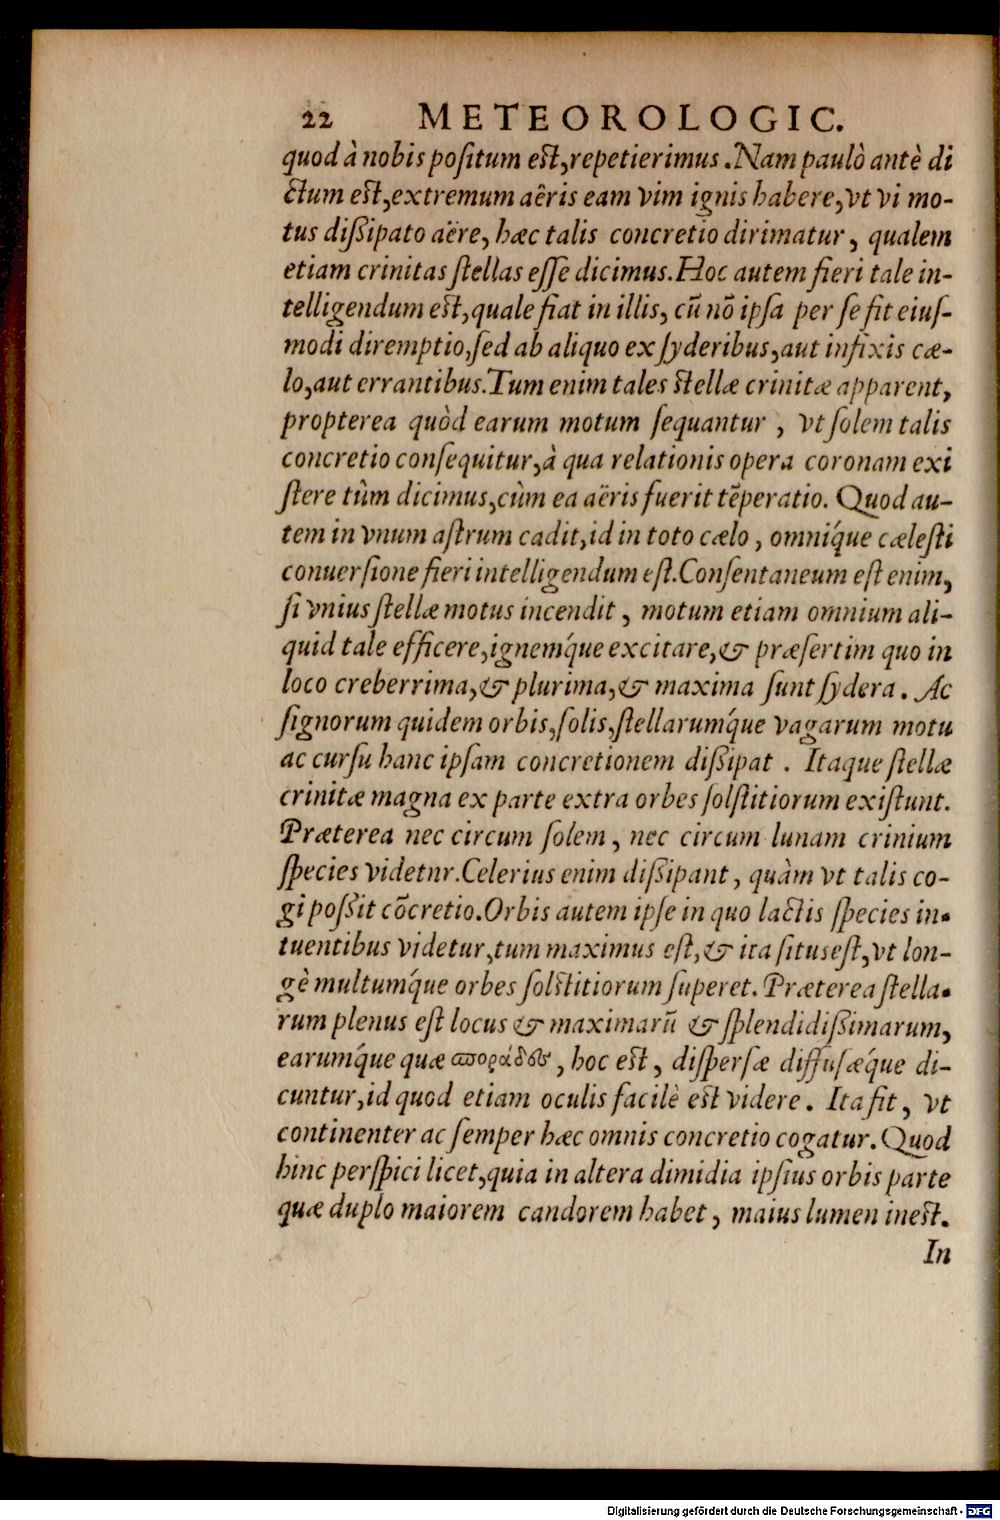 22 METEOROLOGIC.
quod à nobis poſitum eſt, repetierimus. Nam paulò antè di
ctum eſt, extremum aëris eam vim ignis habere, vt vi mo-
tus diſsipato aëre, hæc talis concretio dirimatur, qualem
etiam crinitas ſtellas eſſe dicimus. Hoc autem fieri tale in-
telligendum eſt, quale fiat in illis, cũ nõ ipſa per ſe fit eiuſ-
modi diremptio, ſed ab aliquo ex ſyderibus, aut infixis cæ-
lo, aut errantibus. Tum enim tales ſtellæ crinitæ apparent,
propterea quòd earum motum ſequantur, vt ſolem talis
concretio conſequitur, à qua relationis opera coronam exi
ſtere tùm dicimus, cùm ea aëris fuerit tẽperatio. Quod au-
tem in vnum aſtrum cadit, id in toto cælo, omniq́ue cæleſti
conuerſione fieri intelligendum eſt. Conſentaneum eſt enim,
ſi vnius ſtellæ motus incendit, motum etiam omnium ali-
quid tale efficere, ignemq́ue excitare, & præſertim quo in
loco creberrima, & plurima, & maxima ſunt ſydera. Ac
ſignorum quidem orbis, ſolis, ſtellarumq́ue vagarum motu
ac curſu hanc ipſam concretionem diſsipat. Itaque ſtellæ
crinitæ magna ex parte extra orbes ſolſtitiorum exiſtunt.
Præterea nec circum ſolem, nec circum lunam crinium
ſpecies videtnr. Celerius enim diſsipant, quàm vt talis co-
gi poſsit cõcretio. Orbis autem ipſe in quo lactis ſpecies in-
tuentibus videtur, tum maximus eſt, & ita ſitus eſt, vt lon-
gè multumq́ue orbes ſolſtitiorum ſuperet. Præterea ſtella-
rum plenus eſt locus & maximarũ & ſplendidiſsimarum,
earumq́ue quæ σποράδες, hoc eſt, diſperſæ diffuſæq́ue di-
cuntur, id quod etiam oculis facilè eſt videre. Ita fit, vt
continenter ac ſemper hæc omnis concretio cogatur. Quod
hinc perſpici licet, quia in altera dimidia ipſius orbis parte
quæ duplo maiorem candorem habet, maius lumen ineſt.
In
Digitalisierung gefördert durch die Deutsche Forschungsgemeinschaft - DFG